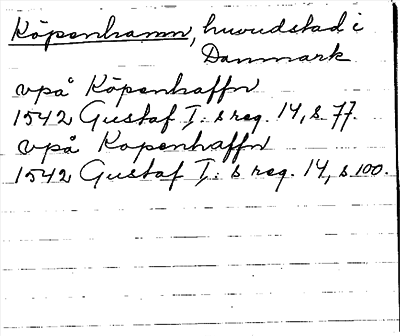 Köpenhamn, huvudstad i
Danmark
vpå Köpenhaffn
1542 Gustaf I:s reg. 14, s. 77.
vpå Kopenhaffn
1542 Gustaf I:s reg. 14, s 100.